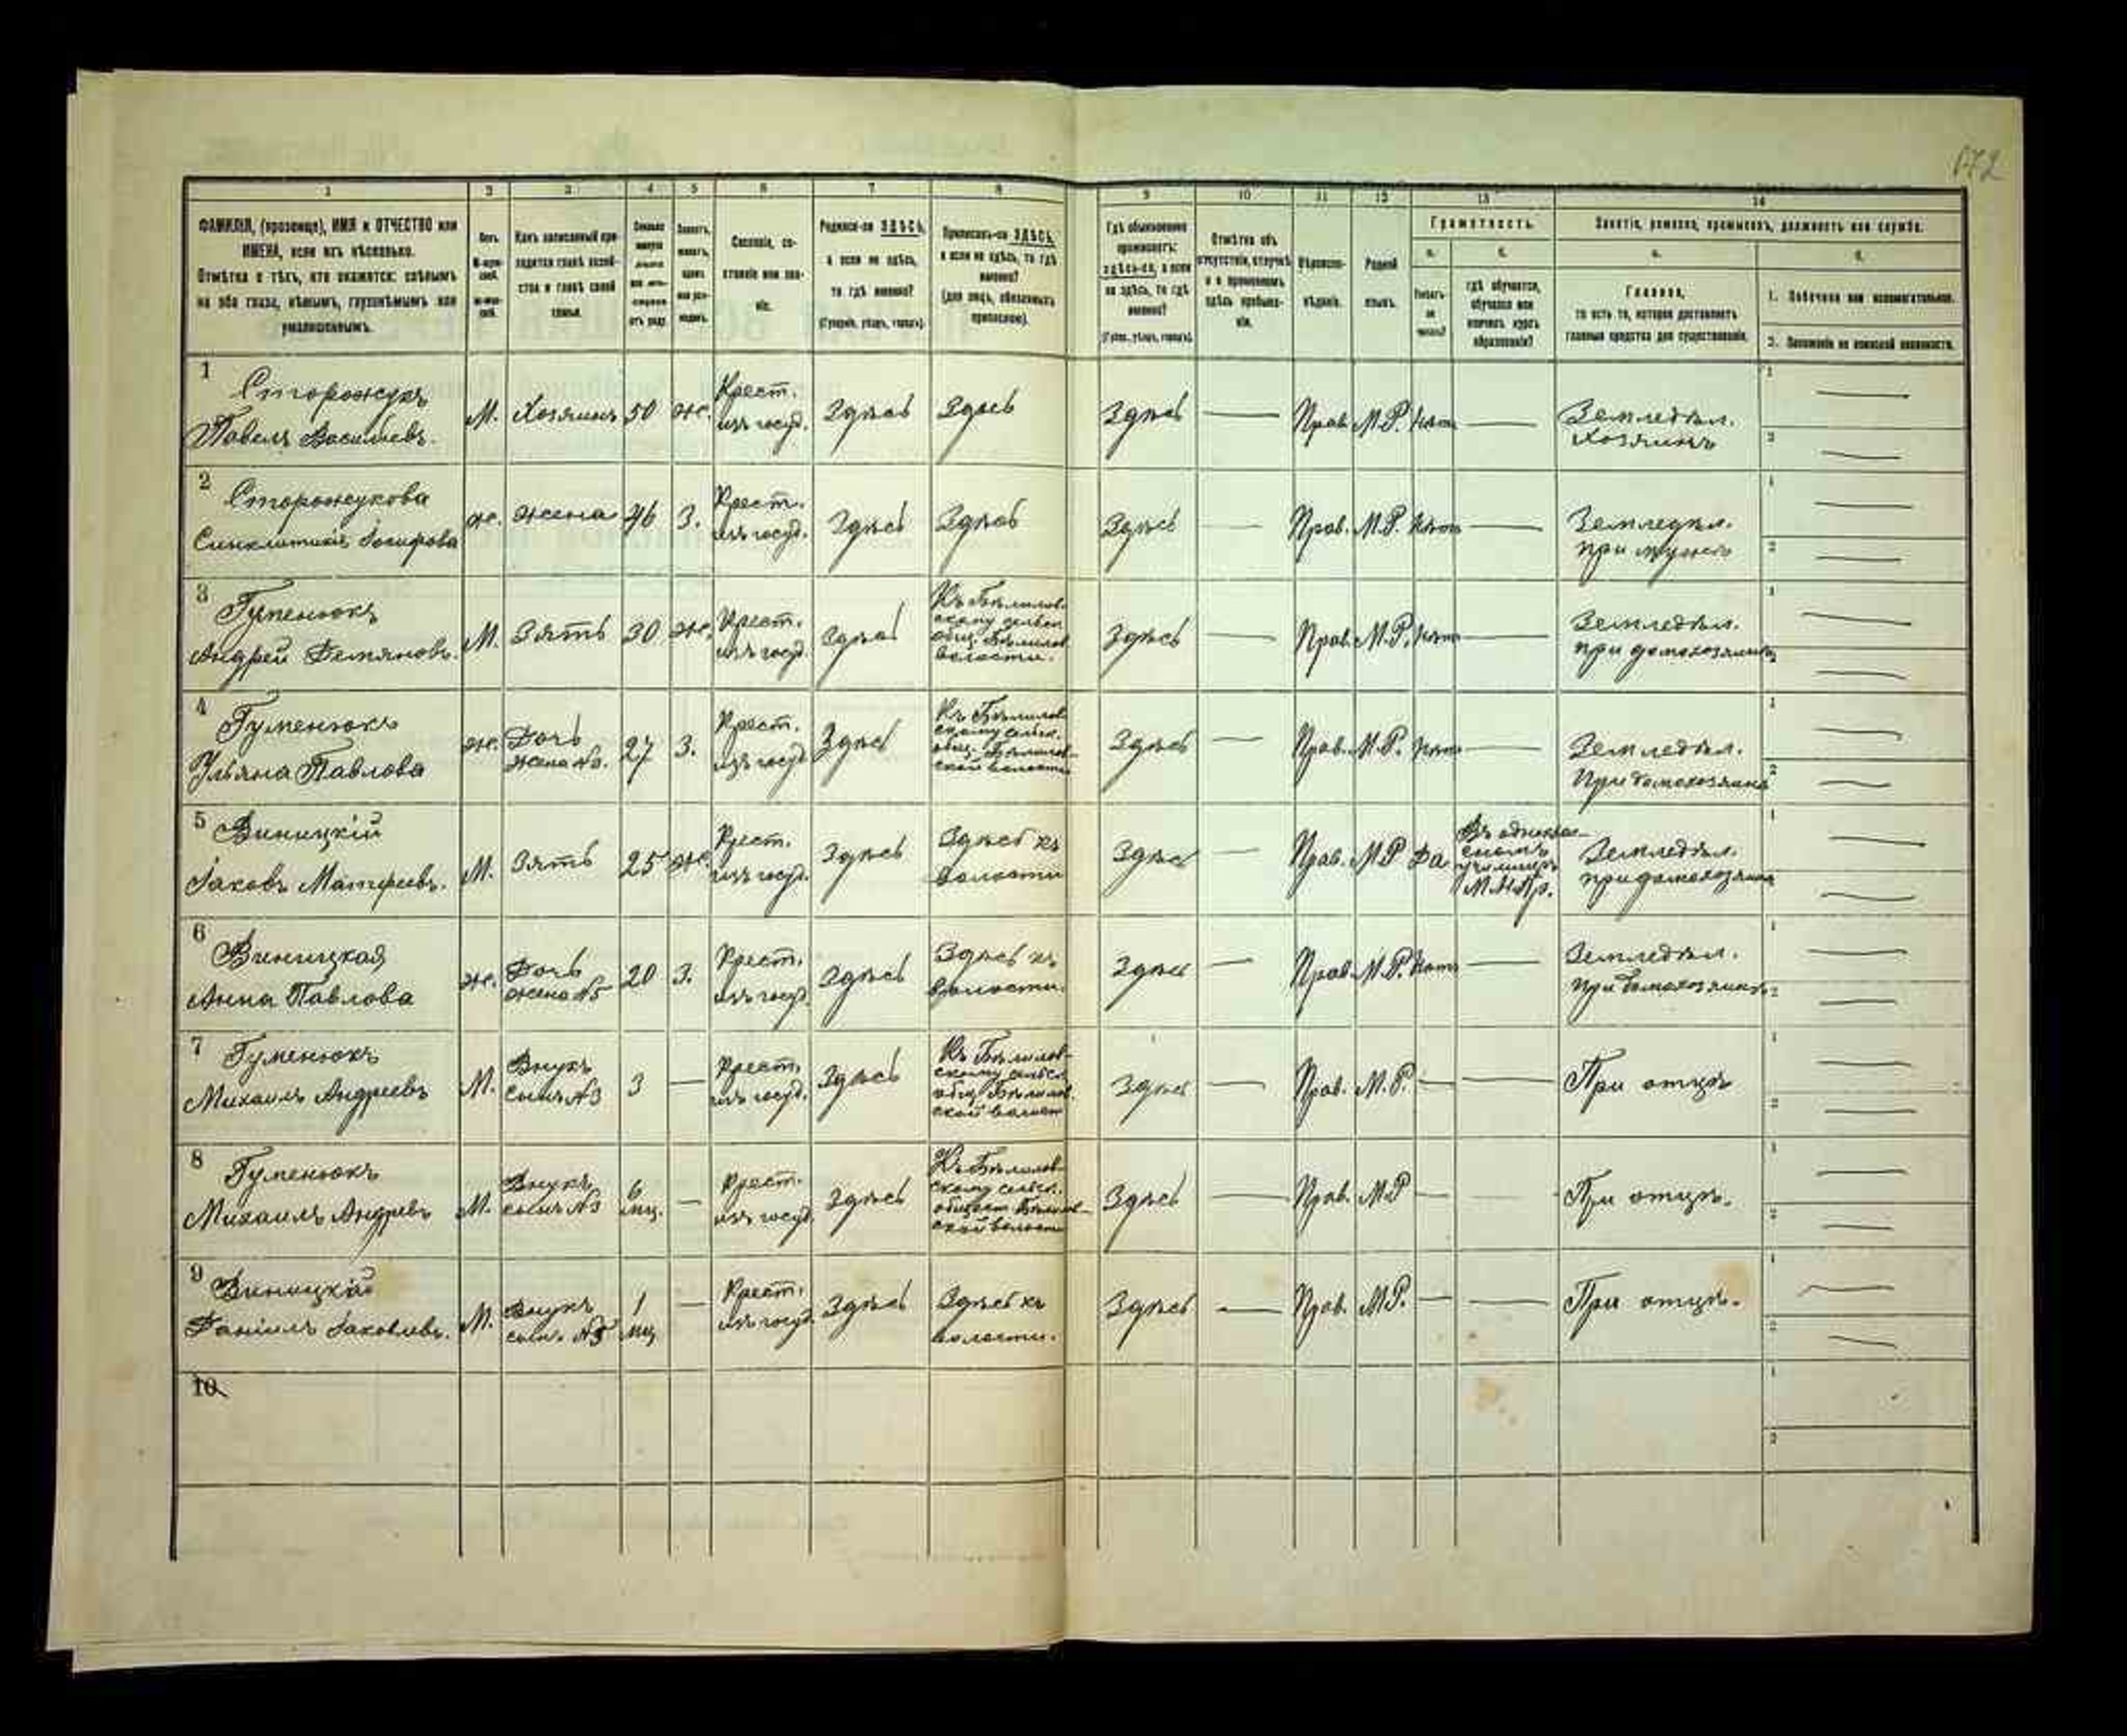 172
1 2 3 4 5 6 7 8 9 10 11 12 13 14
ФАМИЛІЯ, (прозвище), ИМЯ и ОТЧЕСТВО или
ИМЕНА, если ихъ нѣсколько.
Отмѣтка о тѣхъ, кто окажется: слѣпымъ
на оба глаза, нѣмымъ, глухонѣмымъ или
умалишеннымъ.
Какъ записанный при-
ходится главѣ хозяй-
ства и главѣ своей
семьи.
Сословіе, со-
стояніе или зва-
ніе.
Родился-ли ЗДѢСЬ,
а если не здѣсь,
то гдѣ именно?
(Губернія, уѣздъ, городъ).
Приписанъ-ли ЗДѢСЬ,
а если не здѣсь, то гдѣ
именно?
(для лицъ, обязанныхъ
припискою).
Гдѣ обыкновенно
проживаетъ:
здѣсь-ли, а если
не здѣсь, то гдѣ
именно?
(Губ., уѣздъ, городъ).
Отмѣтка объ
отсутствіи, отлучкѣ
и о временномъ
здѣсь пребыва-
ніи.
Вѣроиспо-
вѣданіе.
Родной
языкъ.
Грамотность.
а. б.
Умѣетъ
ли
читать?
гдѣ обучается,
обучался или
кончилъ курсъ
образованія?
Занятіе, ремесло, промыселъ, должность или служба.
а. б.
Главное,
то есть то, которое доставляетъ
главныя средства для существованія.
1. Побочное или вспомогательное.
2. Положеніе по воинской повинности.
1 Сторожукъ
Павелъ Васильевъ.
М. Хозяинъ 50 ж.
Крест.
изъ госуд.
Здѣсь Здѣсь Здѣсь — Прав. М.Р. Нѣтъ —
Земледѣл.
хозяинъ
2 Сторожукова
Синклитикія Іосифова
ж. жена 46 З.
Крест.
изъ госуд.
Здѣсь Здѣсь Здѣсь — Прав. М.Р. Нѣтъ —
Земледѣл.
при мужѣ
3 Гуменюкъ
Андрей Демяновъ.
М. Зять 30 ж.
Крест.
изъ госуд.
Здѣсь
Къ Бѣлилов-
скому сельск.
общ. Бѣлилов.
волости.
Здѣсь — Прав. М.Р. Нѣтъ —
Земледѣл.
при домохозяинѣ
4 Гуменюкъ
Ульяна Павлова
ж.
Дочь
жена №3.
27 З.
Крест.
изъ госуд.
Здѣсь
Къ Бѣлилов-
скому сельск.
общ. Бѣлилов-
ской волости
Здѣсь — Прав. М.Р. Нѣтъ —
Земледѣл.
При домохозяинѣ
5 Виницкій
Іаковъ Матфеевъ.
М. Зять 25 ж.
Крест.
изъ госуд.
Здѣсь
Здѣсь къ
волости
Здѣсь — Прав. М.Р Да
Въ однокла-
сномъ
училищѣ
М.Н.Пр.
Земледѣл.
при домохозяинѣ
6 Виницкая
Анна Павлова
ж.
Дочь
жена №5
20 З.
Крест.
изъ госуд.
Здѣсь
Здѣсь къ
волости.
Здѣсь — Прав. М.Р. Нѣтъ —
Земледѣл.
при домохозяинѣ
7 Гуменюкъ
Михаилъ Андреевъ
М.
Внукъ
сынъ №3
3 —
Крест.
изъ госуд.
Здѣсь
Къ Бѣлилов-
скому сельск.
общ. Бѣлилов-
ской волост
Здѣсь — Прав. М.Р. — —
При отцѣ
8 Гуменюкъ
Михаилъ Андреевъ
М.
Внукъ
сынъ №3
6
мц.
—
Крест.
изъ госуд.
Здѣсь
Къ Бѣлилов-
скому сельск.
общест. Бѣлилов-
ской волости
Здѣсь — Прав. М.Р — —
При отцѣ.
9 Виницкій
Даніилъ Іаковлевъ.
М.
Внукъ
сынъ №5
1
мц
—
Крест.
изъ госуд.
Здѣсь
Здѣсь къ
волости.
Здѣсь — Прав. М.Р. — —
При отцѣ.
10